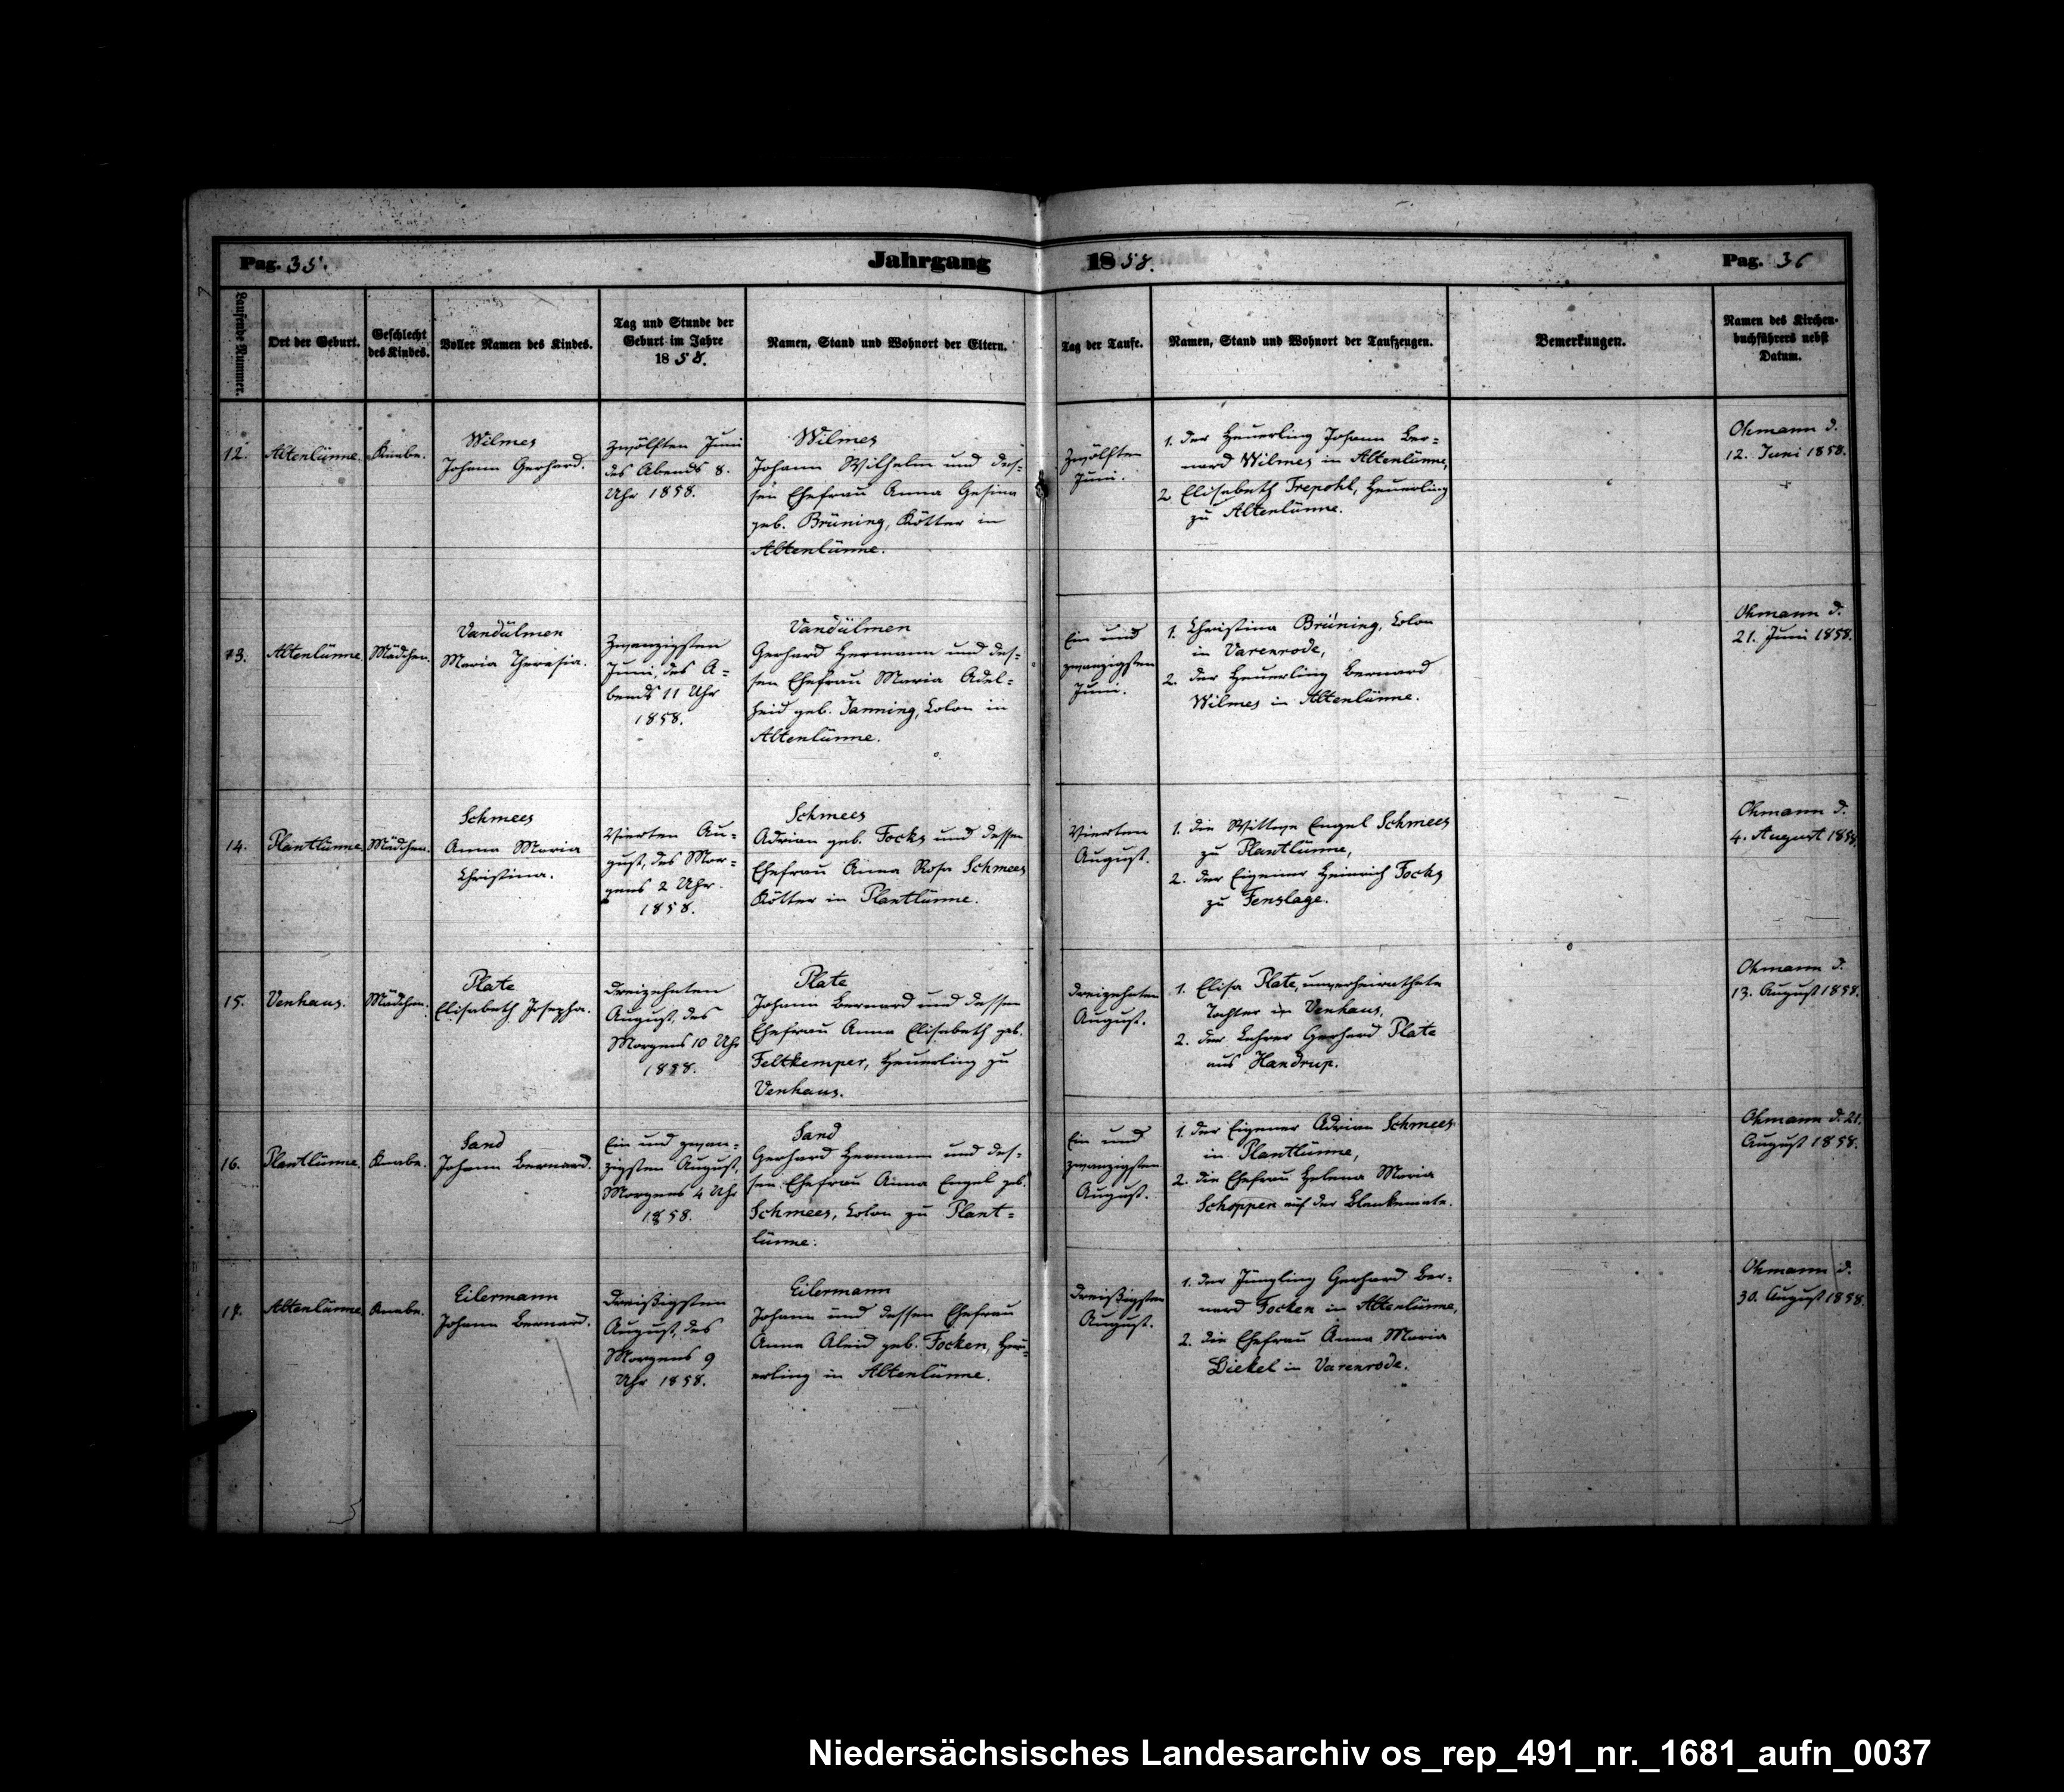 Pag. 35.
Jahrgang
1858.
Pag. 36
Laufende Nummer.
Ort der Geburt.
Geschlecht
des Kindes.
Voller Namen des Kindes.
Tag und Stunde der
Geburt im Jahre
1858.
Namen, Stand und Wohnort der Eltern.
Tag der Taufe.
Namen, Stand und Wohnort der Taufzeugen.
Bemerkungen.
Namen des Kirchen-
buchführers nebst
Datum.
12.
Altenlünne.
Knabe.
Wilmes
Johann Gerhard.
Zwölften Juni
des Abends 8.
Uhr 1858.
Wilmes
Johann Wilhelm und des-
sen Ehefrau Anna Gesina
geb. Brüning, Kötter in
Altenlünne.
Zwölften
Juni.
1. der Heuerling Johann Ber=
nard Wilmes in Altenlünne,
2. Elisabeth Frepohl, Heuerling
zu Altenlünne.
Ohmann d.
12. Juni 1858.
13.
Altenlünne.
Mädchen.
Vandülmen
Maria Theresia.
Zwanzigsten
Juni, des A=
bends 11 Uhr
1858.
Vandülmen
Gerhard Hermann und des-
sen Ehefrau Maria Adel=
heid geb. Janning, Colon in
Altenlünne.
Ein und
zwanzigsten
Juni.
1. Christina Brüning, Colon
in Varenrode,
2. der Heuerling Bernard
Wilmes in Altenlünne.
Ohmann d.
21. Juni 1858.
14.
Plantlünne.
Mädchen.
Schmees
Anna Maria
Christina.
Vierten Au=
gust, des Mor=
gens 2 Uhr.
1858.
Schmees
Adrian geb. Focks und dessen
Ehefrau Anna Rosa Schmees
Kötter in Plantlünne.
Vierten
August.
1. die Wittwe Engel Schmees
zu Plantlünne,
2. der Eigener Heinrich Focks
zu Fenslage.
Ohmann d.
4. August 1858.
15.
Venhaus.
Mädchen.
Plate
Elisabeth Josepha.
Dreizehnten
August, des
Morgens 10 Uhr
1858.
Plate
Johann Bernard und dessen
Ehefrau Anna Elisabeth geb.
Feltkemper, Heuerling zu
Venhaus.
Dreizehnten
August.
1. Elisa Plate, unverheirathete
Tochter in Venhaus,
2. der Lehrer Gerhard Plate
aus Handrup.
Ohmann d.
13. August 1858.
16.
Plantlünne.
Knabe.
Sand
Johann Bernard.
Ein und zwan=
zigsten August,
Morgens 4 Uhr
1858.
Sand
Gerhard Hermann und des-
sen Ehefrau Anna Engel geb.
Schmees, Colon zu Plant=
lünne.
Ein und
zwanzigsten
August.
1. der Eigener Adrian Schmees
in Plantlünne,
2. die Ehefrau Helena Maria
Schoppen auf der
Ohmann d. 21.
August 1858.
17.
Altenlünne.
Knabe.
Eilermann
Johann Bernard.
Dreißigsten
August, des
Morgens 9
Uhr 1858.
Eilermann
Johann und dessen Ehefrau
Anna Aleid geb. Focken, Heu=
erling in Altenlünne.
Dreißigsten
August.
1. der Jüngling Gerhard Ber=
nard Focken in Altenlünne,
2. die Ehefrau Anna Maria
Diekel in Varenrode.
Ohmann d.
30. August 1858.
Niedersächsisches Landesarchiv os_rep_491_nr._1681_aufn_0037